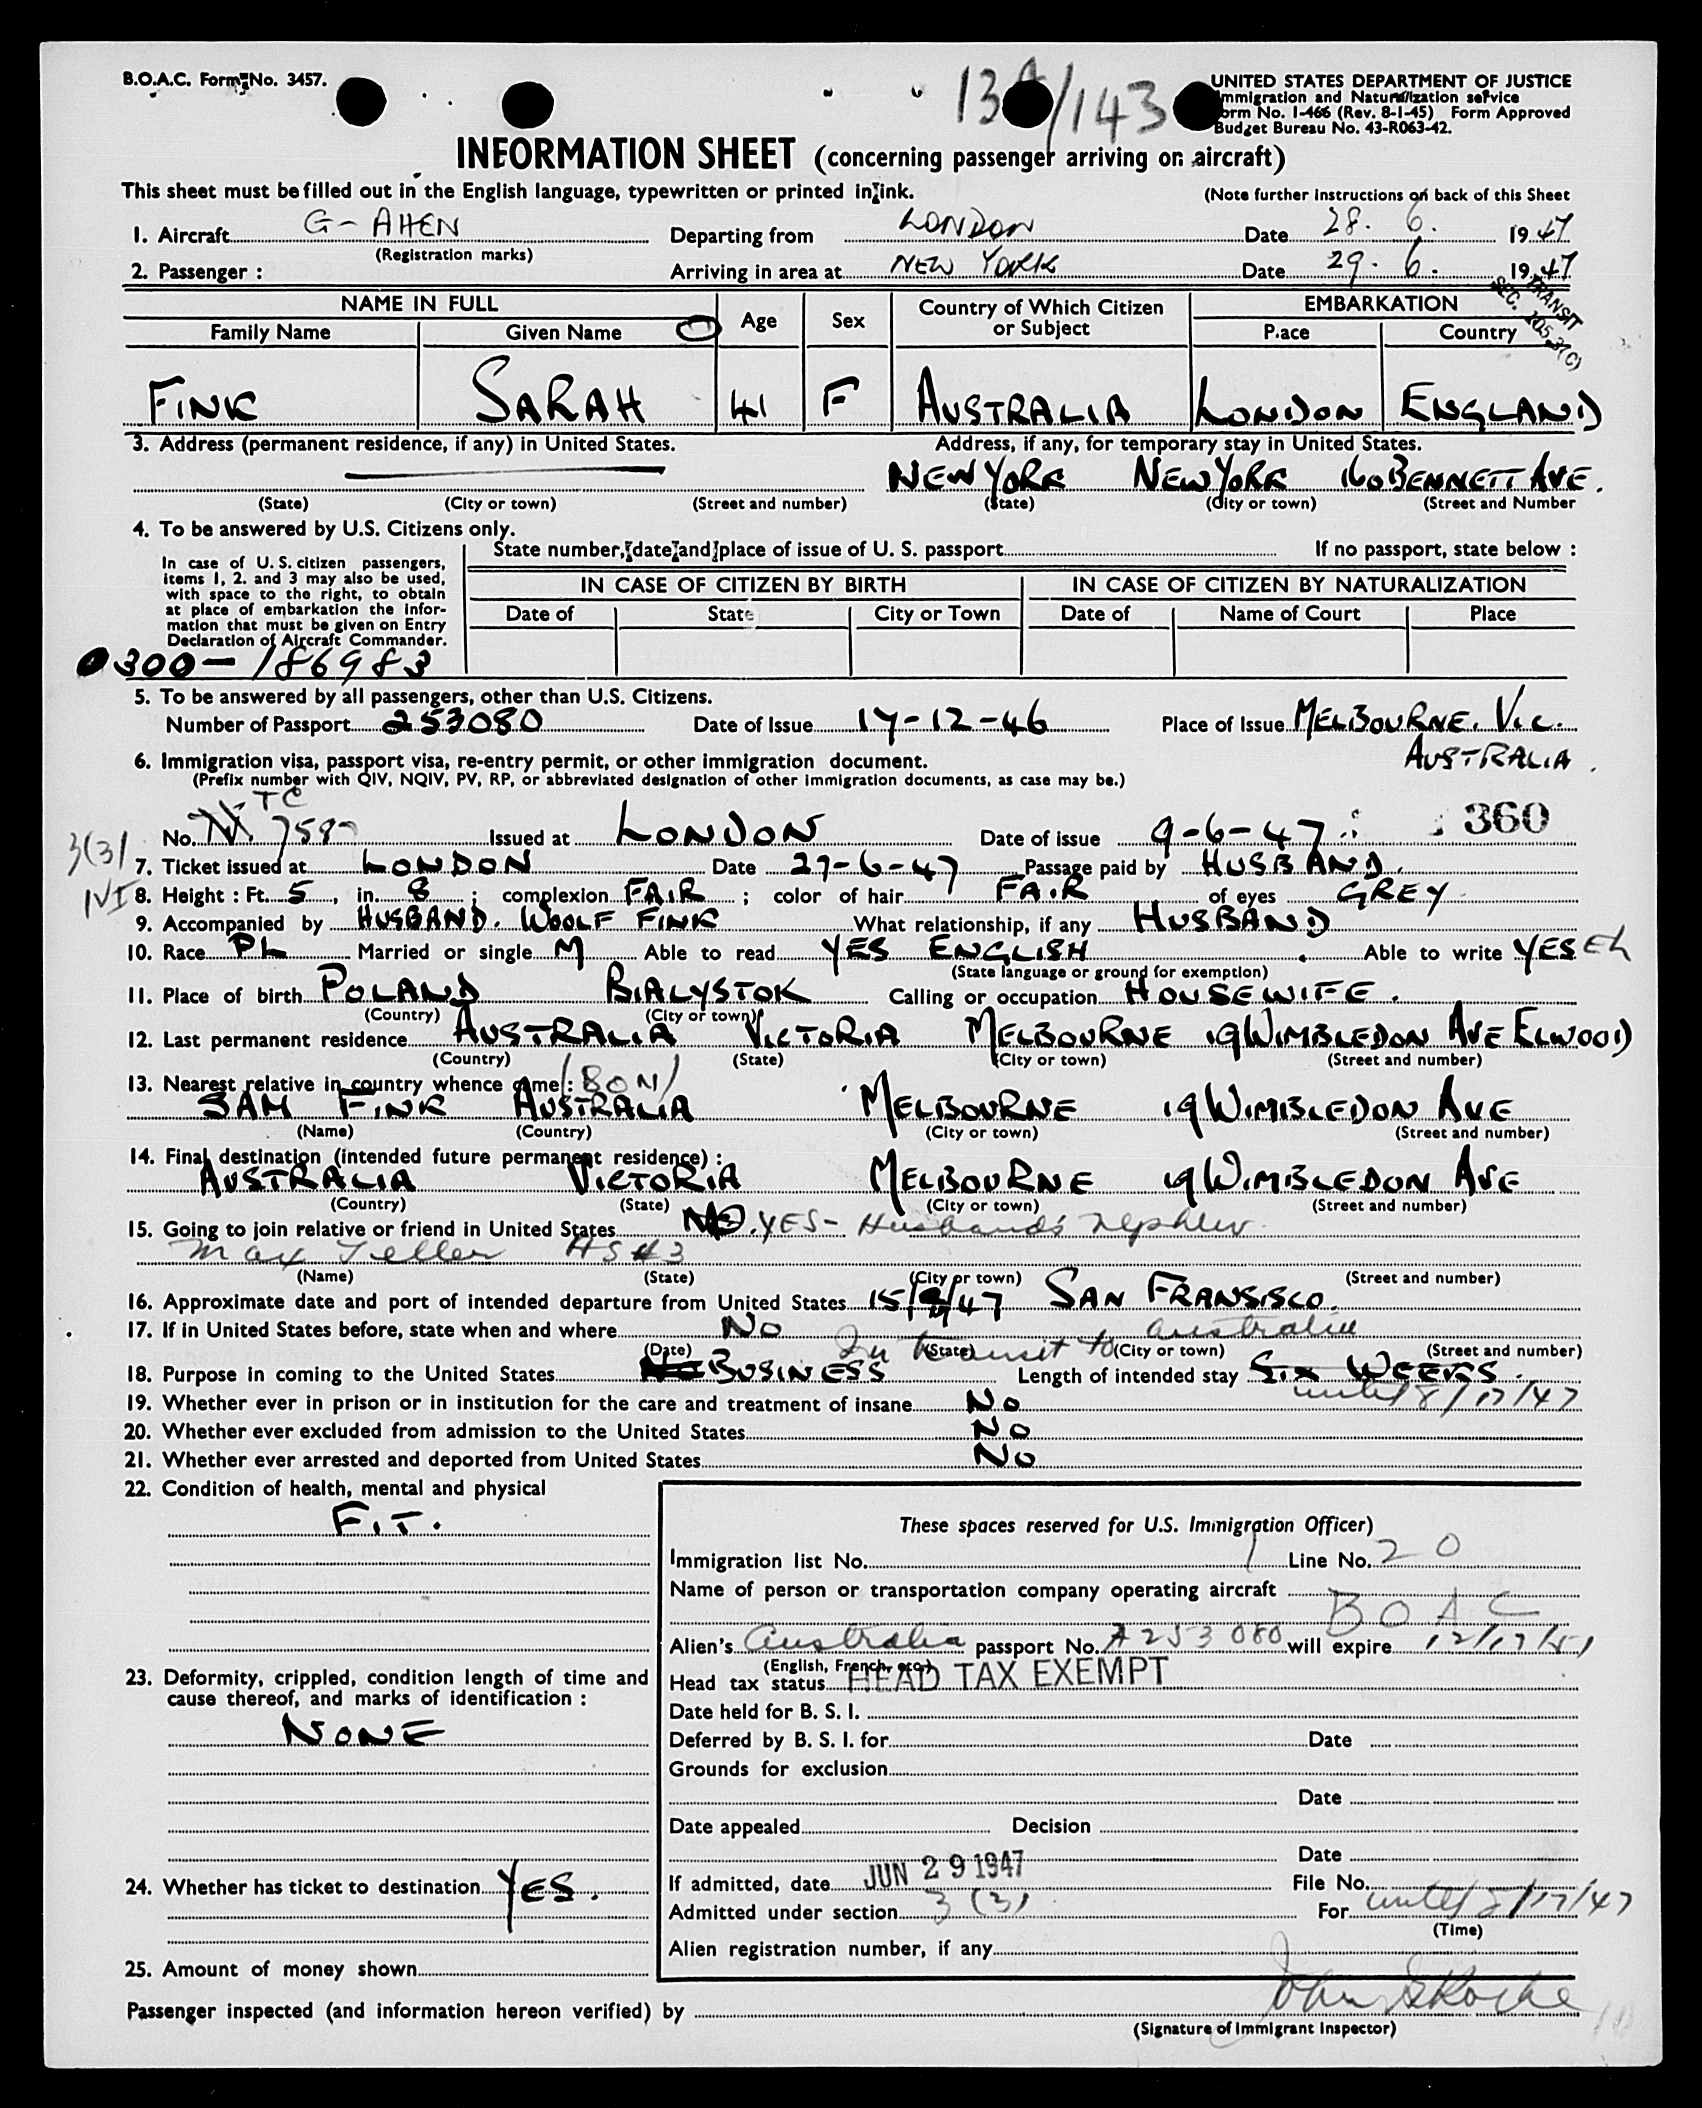 B.O.A.C. Form No. 3457.
13 /143
UNITED STATES DEPARTMENT OF JUSTICE
Immigration and Naturalization service
Form No. I-466 (Rev. 8-1-45) Form Approved
Budget Bureau No. 43-R063-42.
INFORMATION SHEET (concerning passenger arriving on aircraft)
This sheet must be filled out in the English language, typewritten or printed in ink. (Note further instructions on back of this Sheet
1. Aircraft G-AHEN Departing from LONDON Date 28. 6. 1947
(Registration marks)
2. Passenger : Arriving in area at NEW YORK Date 29. 6. 1947
TRANSIT
SEC. 105.3(C)
NAME IN FULL Age Sex Country of Which Citizen or Subject EMBARKATION
Family Name Given Name Place Country
FINK SARAH 41 F AUSTRALIA LONDON ENGLAND
3. Address (permanent residence, if any) in United States. Address, if any, for temporary stay in United States.
NEW YORK NEW YORK 160 BENNETT AVE.
(State) (City or town) (Street and number) (State) (City or town) (Street and Number
4. To be answered by U.S. Citizens only.
In case of U.S. citizen passengers,
items 1, 2. and 3 may also be used,
with space to the right, to obtain
at place of embarkation the infor-
mation that must be given on Entry
Declaration of Aircraft Commander.
State number, date and place of issue of U. S. passport If no passport, state below :
IN CASE OF CITIZEN BY BIRTH IN CASE OF CITIZEN BY NATURALIZATION
Date of State City or Town Date of Name of Court Place
0300-186983
5. To be answered by all passengers, other than U.S. Citizens.
Number of Passport 253080 Date of Issue 17-12-46 Place of Issue MELBOURNE. VIC.
AUSTRALIA.
6. Immigration visa, passport visa, re-entry permit, or other immigration document.
(Prefix number with QIV, NQIV, PV, RP, or abbreviated designation of other immigration documents, as case may be.)
TC
No. 7587 Issued at LONDON Date of issue 9-6-47 360
3(3)
7. Ticket issued at LONDON Date 27-6-47 Passage paid by HUSBAND.
IVI
8. Height : Ft. 5, in. 8 ; complexion FAIR ; color of hair FAIR of eyes GREY
9. Accompanied by HUSBAND. WOOLF FINK What relationship, if any HUSBAND
10. Race PL Married or single M Able to read YES ENGLISH Able to write YES
(State language or ground for exemption)
11. Place of birth POLAND BIALYSTOK Calling or occupation HOUSEWIFE.
(Country) (City or town)
12. Last permanent residence AUSTRALIA VICTORIA MELBOURNE 19 WIMBLEDON AVE ELWOOD
(Country) (State) (City or town) (Street and number)
13. Nearest relative in country whence came : (SON)
SAM FINK AUSTRALIA MELBOURNE 19 WIMBLEDON AVE
(Name) (Country) (City or town) (Street and number)
14. Final destination (intended future permanent residence) :
AUSTRALIA VICTORIA MELBOURNE 19 WIMBLEDON AVE
(Country) (State) (City or town) (Street and number)
15. Going to join relative or friend in United States NO. YES - Husband's nephew
Max Teller AS #3
(Name) (State) (City or town) (Street and number)
16. Approximate date and port of intended departure from United States 15/ /47 SAN FRANSISCO.
17. If in United States before, state when and where NO
(Date) (State) (City or town) (Street and number)
In transit to Australia
18. Purpose in coming to the United States BUSINESS Length of intended stay SIX WEEKS.
until 8/17/47
19. Whether ever in prison or in institution for the care and treatment of insane NO
20. Whether ever excluded from admission to the United States NO
21. Whether ever arrested and deported from United States NO
22. Condition of health, mental and physical
FIT.
23. Deformity, crippled, condition length of time and
cause thereof, and marks of identification :
NONE
24. Whether has ticket to destination YES.
25. Amount of money shown
These spaces reserved for U.S. Immigration Officer)
Immigration list No. 1 Line No. 20
Name of person or transportation company operating aircraft
BOAC
Alien's Australia passport No. A253080 will expire 12/17/51
(English, French, etc.)
Head tax status HEAD TAX EXEMPT
Date held for B. S. I.
Deferred by B. S. I. for Date
Grounds for exclusion
Date
Date appealed Decision
Date
If admitted, date JUN 29 1947 File No.
Admitted under section 3(3) For until 8/17/47
(Time)
Alien registration number, if any
Passenger inspected (and information hereon verified) by
(Signature of Immigrant Inspector)